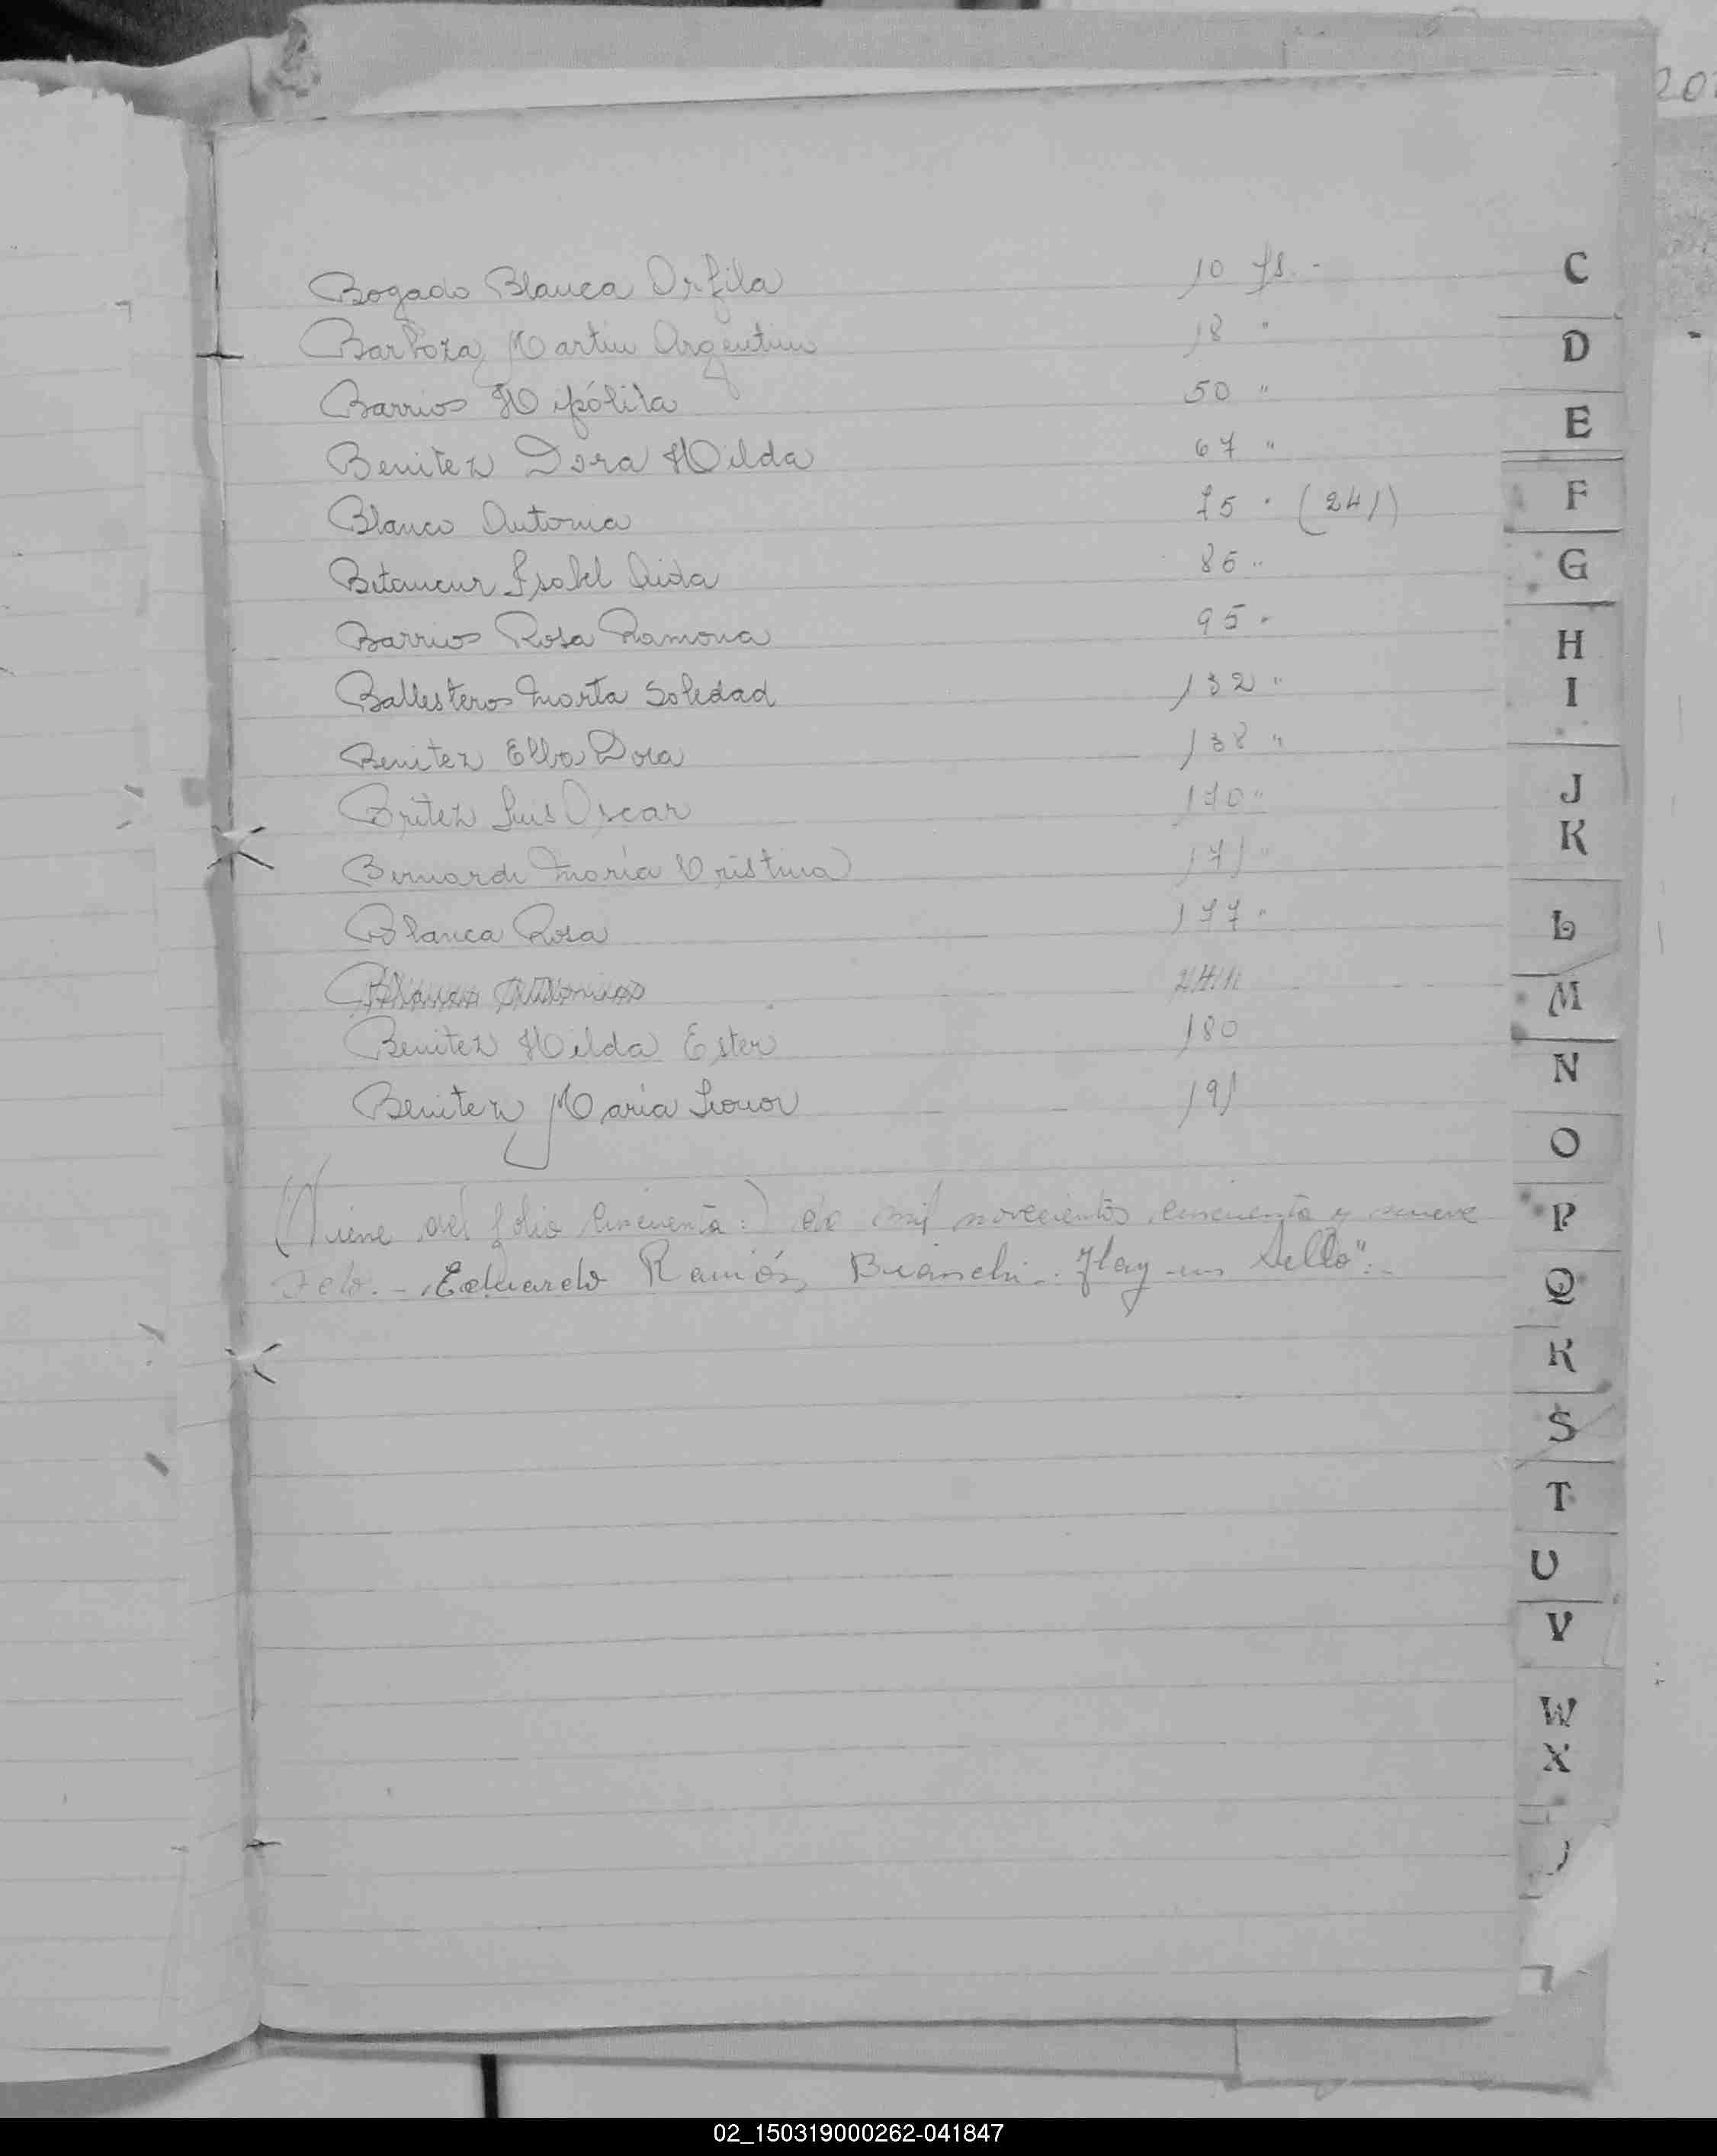 Bogado Blanca Orfila 10 fs. -
Barboza, Martin Argentino 18 "
Barrios Hipólita 50 "
Benitez Dora Hilda 67 "
Blanco Antonia 75 " (241)
Betancur Isabel Aida 86 "
Barrios Rosa Ramona 95 "
Ballesteros Marta Soledad 132 "
Benitez Elba Dora 138 "
Britez Luis Oscar 170 "
Bernardi María Cristina 171 "
Blanca Rosa 177 "
Benitez Hilda Ester 180
Benitez María Leonor 191
(Viene del folio cincuenta:) de mil novecientos cincuenta y nueve
Fdo. - Eduardo Ramón Bianchi -. Hay un sello". -
C
D
E
F
G
H
I
J
K
L
M
N
O
P
Q
R
S
T
U
V
W
X
02_150319000262-041847